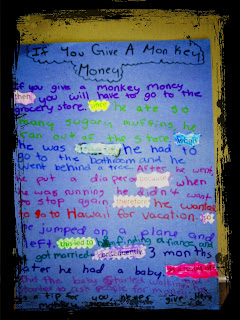 If You Give A Monkey
Money
If you give a monkey money
then you will have to go to the
grocery store. he ate so
many sugary muffins he
ran out of the store.
he was he had to
go to the bathroom and he
went behind a tree. After he went
he put a diaper when
he was running he didn't want
to stop again. therefore he wanted
to go to Hawaii for vacation. so
he jumped on a plane and
left. this led to finding a fiance, and
got married. consequently 3 months
later he had a baby.
this the baby started walking
a tip for you never give